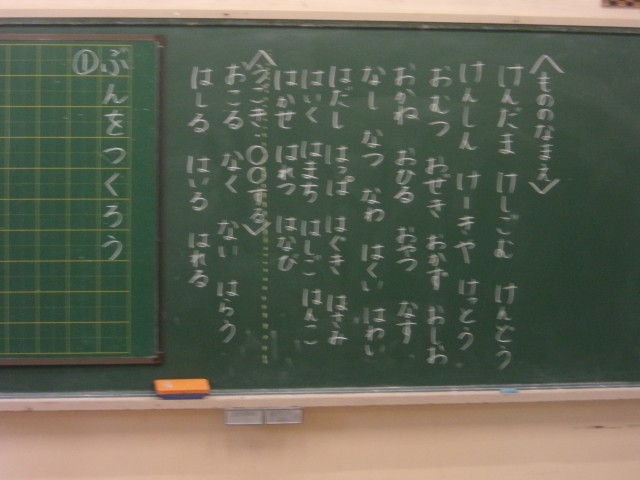 〈もののなまえ〉
けんだま けしごむ けんどう
けんしん けーきや けっとう
おむつ おぜき おかず おしお
おかね おひる おやつ なす
なし なつ なわ はくい はわい
はだし はっぱ はぐき はさみ
はいく はまち はしご はんこ
はかせ はれつ はなび
〈うごき:〇〇する〉
おこる なく ない はらう
はしる はいる はれる
①ぶんをつくろう